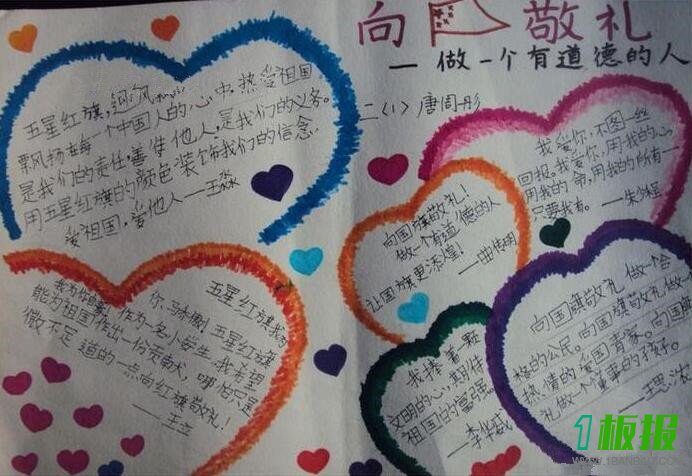 向 敬礼
—做一个有道德的人
二(1)唐周彤
五星红旗,迎风
飘风扬在每一个中国人的心中.热爱祖国
是我们的责任,善待他人,是我们的义务。
用五星红旗的颜色装饰我们的信念.
爱祖国,爱他人——王淼
我爱你,不图一丝
回报。我爱你,用我的心
用我的命,用我的所有
只要我有。
向国旗敬礼!
做一个有道德的人
让国旗更添煌!
五星红旗我
你马来傲!五星红旗
我为你自豪!作为一名小学生.我希望
能为祖国作出一份贡献,哪怕只是
微不足道的一点向红旗敬礼!
——王立
我捧着
文明的心,期伴
祖国旧的富强
向国旗敬礼 做一个合
格的公民.向国旗敬礼做一
热情的爱国青家。向国旗
礼做一个懂事的好孩子。
1板报
WWW.1BANBAO.COM